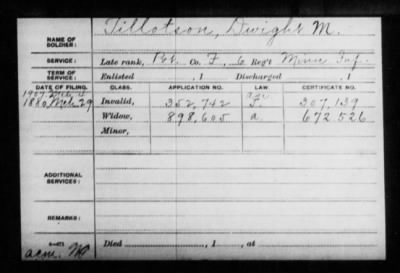 NAME OF SOLDIER: Tillotson, Dwight M.
SERVICE: Late rank, Pvt. Co. F, 6 Reg't Minn Inf.
TERM OF SERVICE: Enlisted , 1 Discharged , 1
DATE OF FILING. CLASS. APPLICATION NO. LAW. CERTIFICATE NO.
1907
1880 Mch 29 Invalid, 352,742 307,139
Widow, 898,605 a 672 526
Minor,
ADDITIONAL SERVICES:
REMARKS:
Died , 1 , at